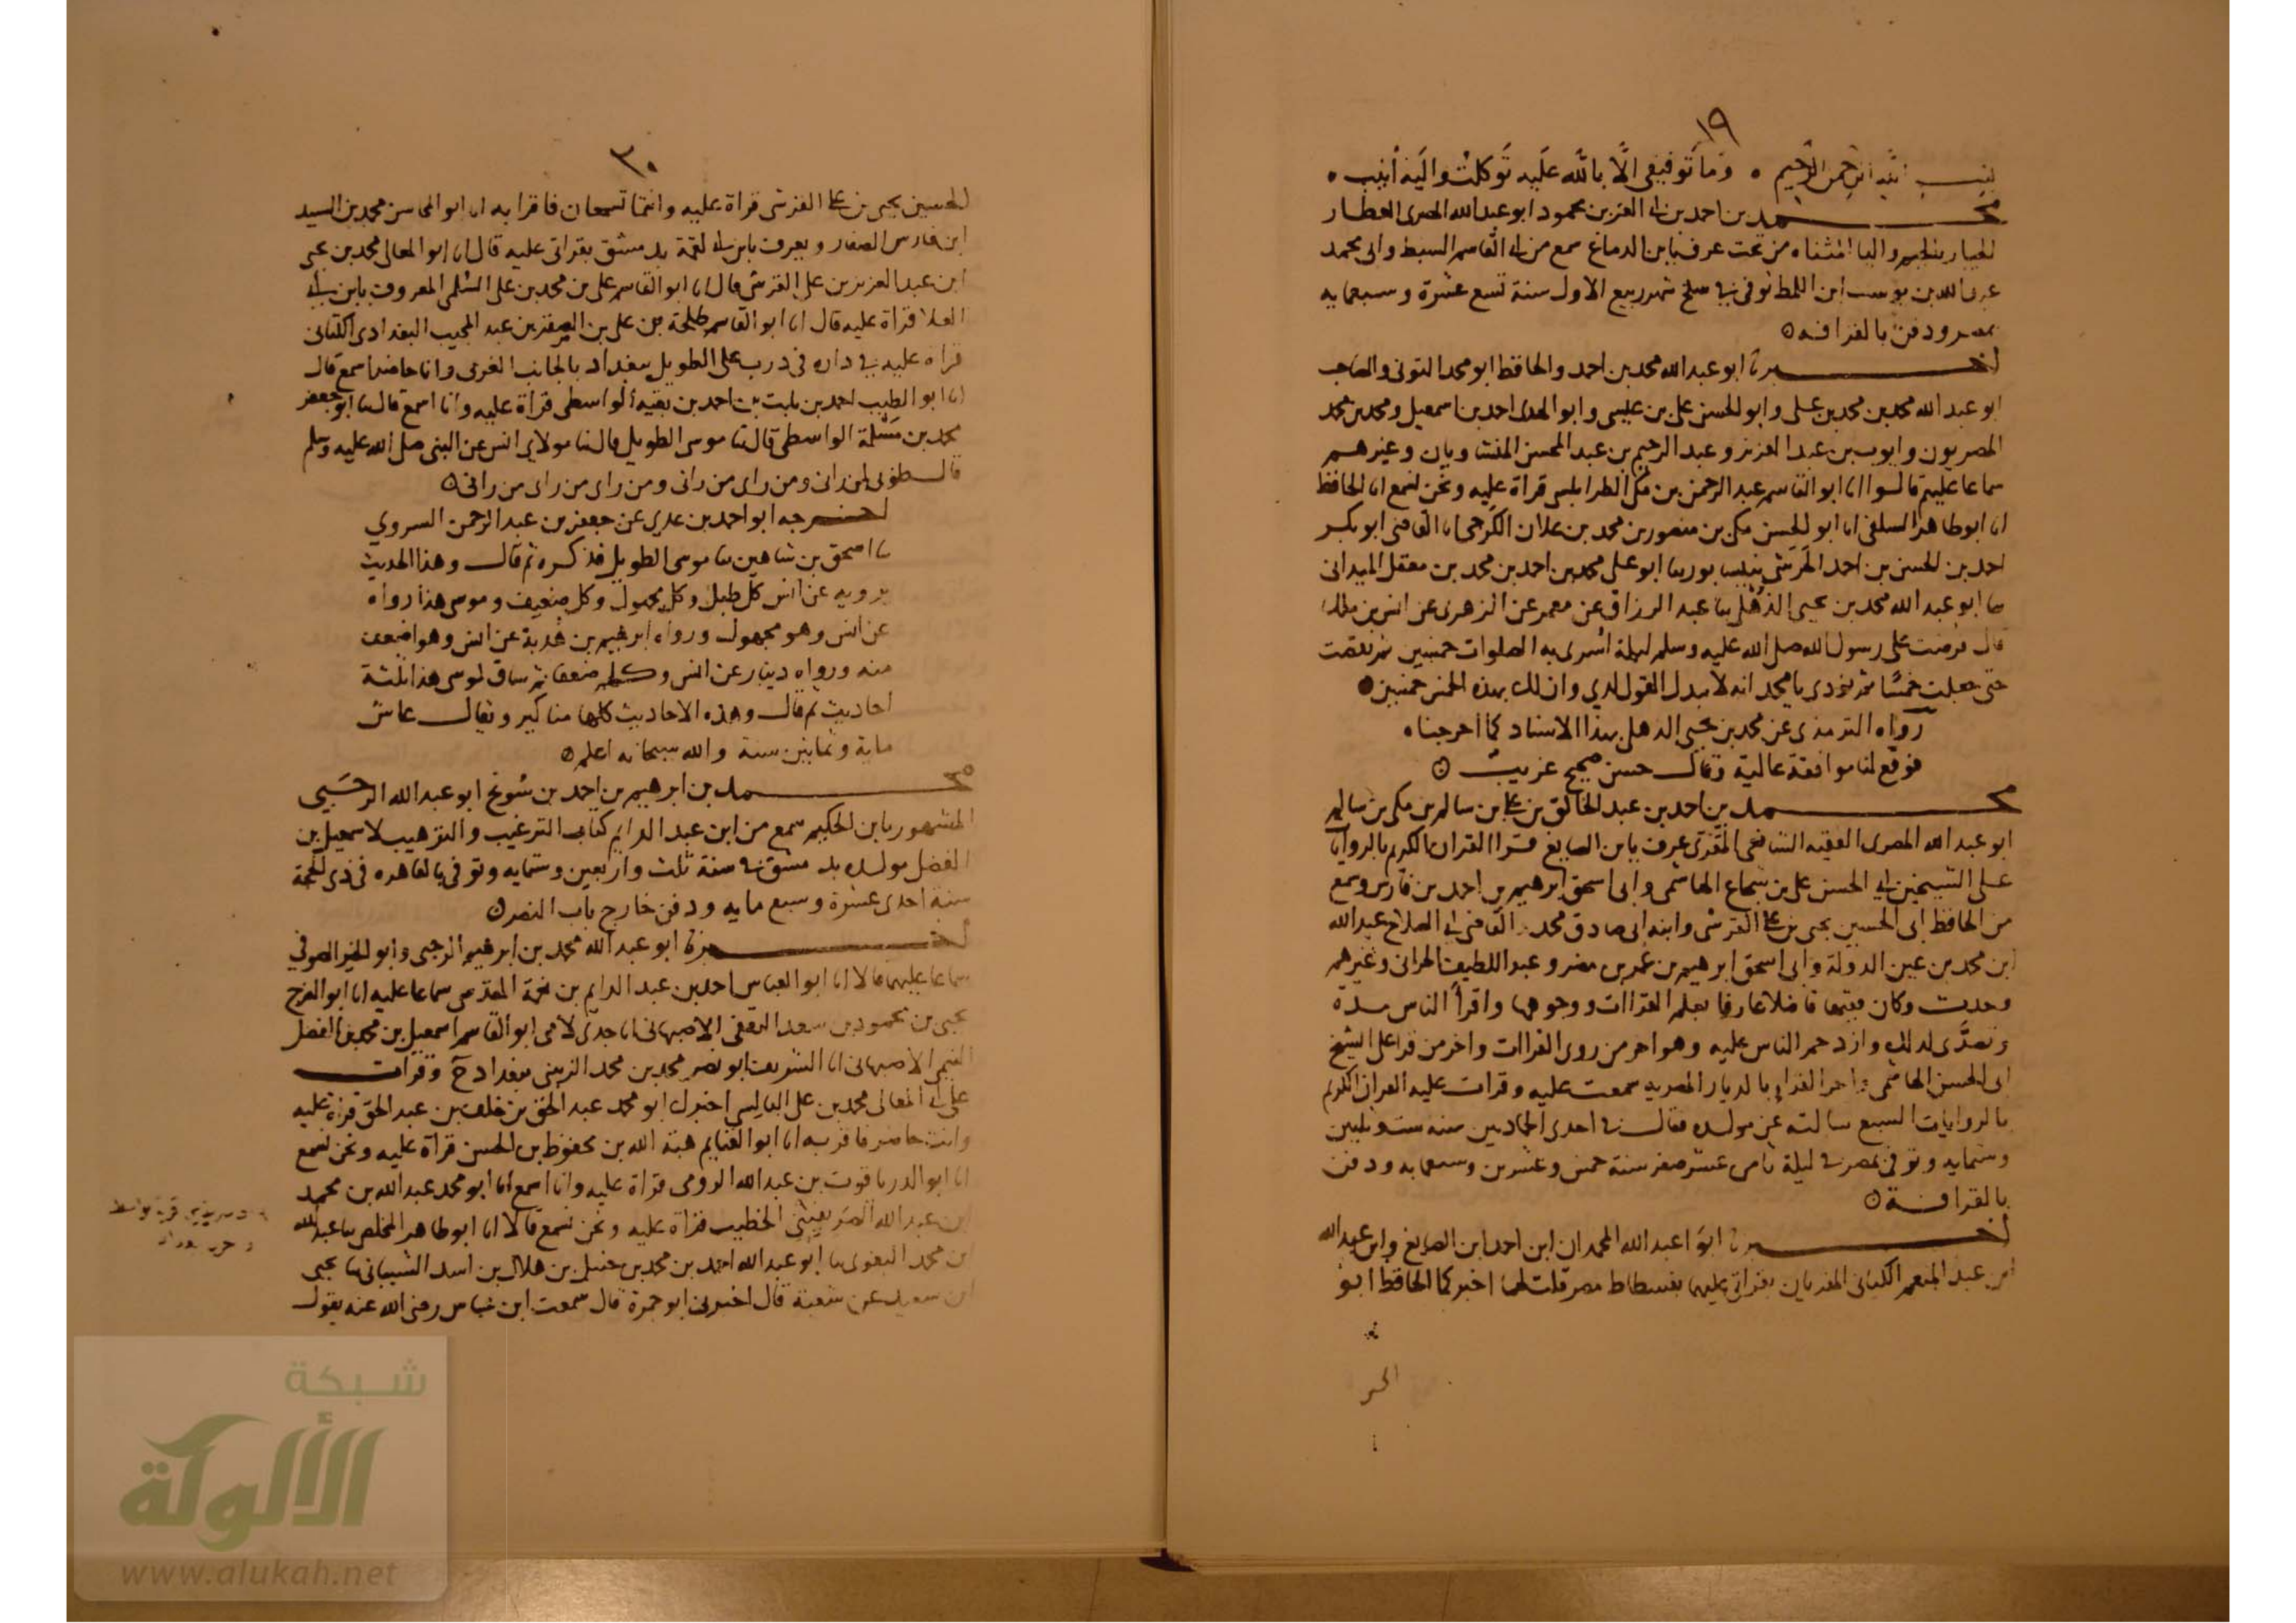 ١٩
بسم الله الرحمن الرحيم ٥ وَمَا تَوفيقى الَّا باللَّه عَلَيه تَوكلتُ والَيهِ أُنِيب ٥
محمد بن احمد بن ابى العز بن محمود ابو عبد الله المصرى العطار
الجيار بالجيم واليا المثناه من تحت عرف بابن الدماغ سمع من ابى القاسم السبط وابى محمد
عبد الله بن يوسف ابن اللمط توفى فى سلخ شهر ربيع الاول سنة تسع عشرة وسبعمايه
بمصر ودفن بالقرافه ٥
اخبرنا ابو عبد الله محمد بن احمد والحافظ ابو محمد التونى والصاحب
ابو عبد الله محمد بن محمد بن على وابو الحسن على بن عيسى وابو الهدى احمد بن اسمعيل ومحمد بن محمد
المصريون وايوب بن عبد العزيز وعبد الرحيم بن عبد المحسن المنشاويان وغيرهم
سماعا عليهم قالوا انا ابو القاسم عبد الرحمن بن مكى الطرابلسى قراة عليه ونحن نسمع انا الحافظ
انا ابو طاهر السلفى انا ابو الحسن مكى بن منصور بن محمد بن علان الكَرجى انا القاضى ابو بكر
احمد بن الحسن بن احمد الحَرَشى بنيسابور نا ابو على محمد بن احمد بن محمد بن معقل الميدانى
نا ابو عبد الله محمد بن يحيى الذُهْلى نا عبد الرزاق عن معمر عن الزهرى عن انس بن مالك
قال فرضت على رسول الله صلى الله عليه وسلم ليلة أسرى به الصلوات خمسين ثم نقصت
حتى جعلت خمسًا ثم نودى يا محمد انه لا يبدل القول لدى وان لك بهذه الخمس خمسين ٥
رواه الترمذى عن محمد بن يحيى الذهلى بهذا الاسناد كما اخرجناه
فوقع لنا موافقة عالية وقال حسن صحيح غريب ٥
محمد بن احمد بن عبد الخالق بن على بن سالم بن مكى بن سالم
ابو عبد الله المصرى الفقيه الشافعى المقرى عرف بابن الصايغ قرا القران الكريم بالروايات
على الشيخين ابى الحسن على بن شجاع الهاشمى وابى اسحق ابرهيم بن احمد بن فارس وسمع
من الحافظ ابى الحسين يحيى بن على القرشى وابنه ابى صادق محمد والقاضى ابى الصلاح عبد الله
ابن محمد بن عين الدولة وابى اسحق ابرهيم بن عمر بن مضر وعبد اللطيف الحرانى وغيرهم
وحدث وكان فقيها فاضلا عارفا بعلم القراات ووجوهها واقرأ الناس مدة
وتصدَّى لذلك وازدحم الناس عليه وهو اخر من روى القراات واخر من قرا على الشيخ
ابى الحسن الهاشمى واخر القراء بالديار المصريه سمعت عليه وقرات عليه القران الكريم
بالروايات السبع سالته عن مولده فقال فى احدى الجمادين سنه ست وثلثين
وستمايه وتوفى بمصر فى ليلة ثامن عشر صفر سنة خمس وعشرين وسبعمايه ودفن
بالقرافة ٥
اخبرنا ابوَا عبد الله المحمدان ابن احمد ابن الصايغ وابن عبد الله
ابن عبد المنعم الكنانى المقريان بقراتى عليهما بفسطاط مصر قلت لهما اخبركما الحافظ ابو
الحسـ
٣٠
الحسين يحيى بن على القرشى قراة عليه وانتما تسمعان فاقرا به انا ابو المحاسن محمد بن السيد
ابن فارس الصفار ويعرف بابن ابى لقمة بدمشق بقراتى عليه قال انا ابو المعالى محمد بن يحيى
ابن عبد العزيز بن على القرشى قال انا ابو القاسم على بن محمد بن على السُّلمى المعروف بابن ابى
العلا قراة عليه قال انا ابو القاسم طلحة بن على بن الصقر بن عبد المجيب البغدادى الكتانى
قراه عليه فى داره فى درب على الطويل ببغداد بالجانب الغربى وانا حاضر اسمع قال
انا ابو الطيب احمد بن ثابت بن احمد بن بقيه الواسطى قراة عليه وانا اسمع قال نا ابو جعفر
محمد بن مَسْلمة الواسطى قال نا موسى الطويل قال نا مولاى انس عن النبى صلى الله عليه وسلم
قال طوبى لمن رانى ومن راى من رانى ومن راى من راى من رانى ٥
اخرجه ابو احمد بن عدى عن جعفر بن عبد الرحمن السروي
نا اسحق بن شاهين نا موسى الطويل فذكره ثم قال وهذا الحديث
يرويه عن انس كل طبل وكل مجهول وكل ضعيف وموسى هذا رواه
عن انس وهو مجهول ورواه ابرهيم بن هُدبة عن انس وهو اضعف
منه ورواه دينار عن انس وكلهم ضعفا ثم ساق لموسى هذا ثلثة
احاديث ثم قال وهذه الاحاديث كلها مناكير ويقال عاش
ماية وثمانين سنة والله سبحانه اعلم ٥
محمد بن ابرهيم بن احمد بن شويخ ابو عبد الله الرحَبيى
المشهور بابن الحكيم سمع من ابن عبد الدايم كتاب الترغيب والترهيب لاسمعيل بن
الفضل مولده بدمشق فى سنة ثلث واربعين وستمايه وتوفى بالقاهره فى ذى الحجة
سنة احدى عشرة وسبع مايه ودفن خارج باب النصر ٥
اخبرنا ابو عبد الله محمد بن ابرهيم الرحبى وابو الخير الصوفي
سماعا عليهما قالا انا ابو العباس احمد بن عبد الدايم بن نعمة المقدسى سماعا عليه انا ابو الفرج
يحيى بن محمود بن سعد الثقفى الاصبهانى انا جدى لامى ابو القاسم اسمعيل بن محمد بن الفضل
التيمى الاصبهانى انا الشريف ابو نصر محمد بن محمد الزينبى ببغداد ح وقرات
على ابى المعالى محمد بن على البالسى اخبرك ابو محمد عبد الحق بن خلف بن عبد الحق قراة عليه
وانت حاضر فاقر به انا ابو الغنايم هبة الله بن محفوظ بن الحسن قراة عليه ونحن نسمع
انا ابو الدر ياقوت بن عبد الله الرومى قراة عليه وانا اسمع انا ابو محمد عبد الله بن محمد
ابن عبد الله الصَريفينى الخطيب قراة عليه ونحن نسمع قالا انا ابو طاهر المخلص نا عبد الله
ابن محمد البغوى نا ابو عبد الله احمد بن محمد بن حنبل بن هلال بن اسد الشيبانى نا يحيى
ابن سعيد عن شعبة قال اخبرنى ابو جمرة قال سمعت ابن عباس رضى الله عنه يقول
قرية بواسط
شبكة
الألوكة
www.alukah.net